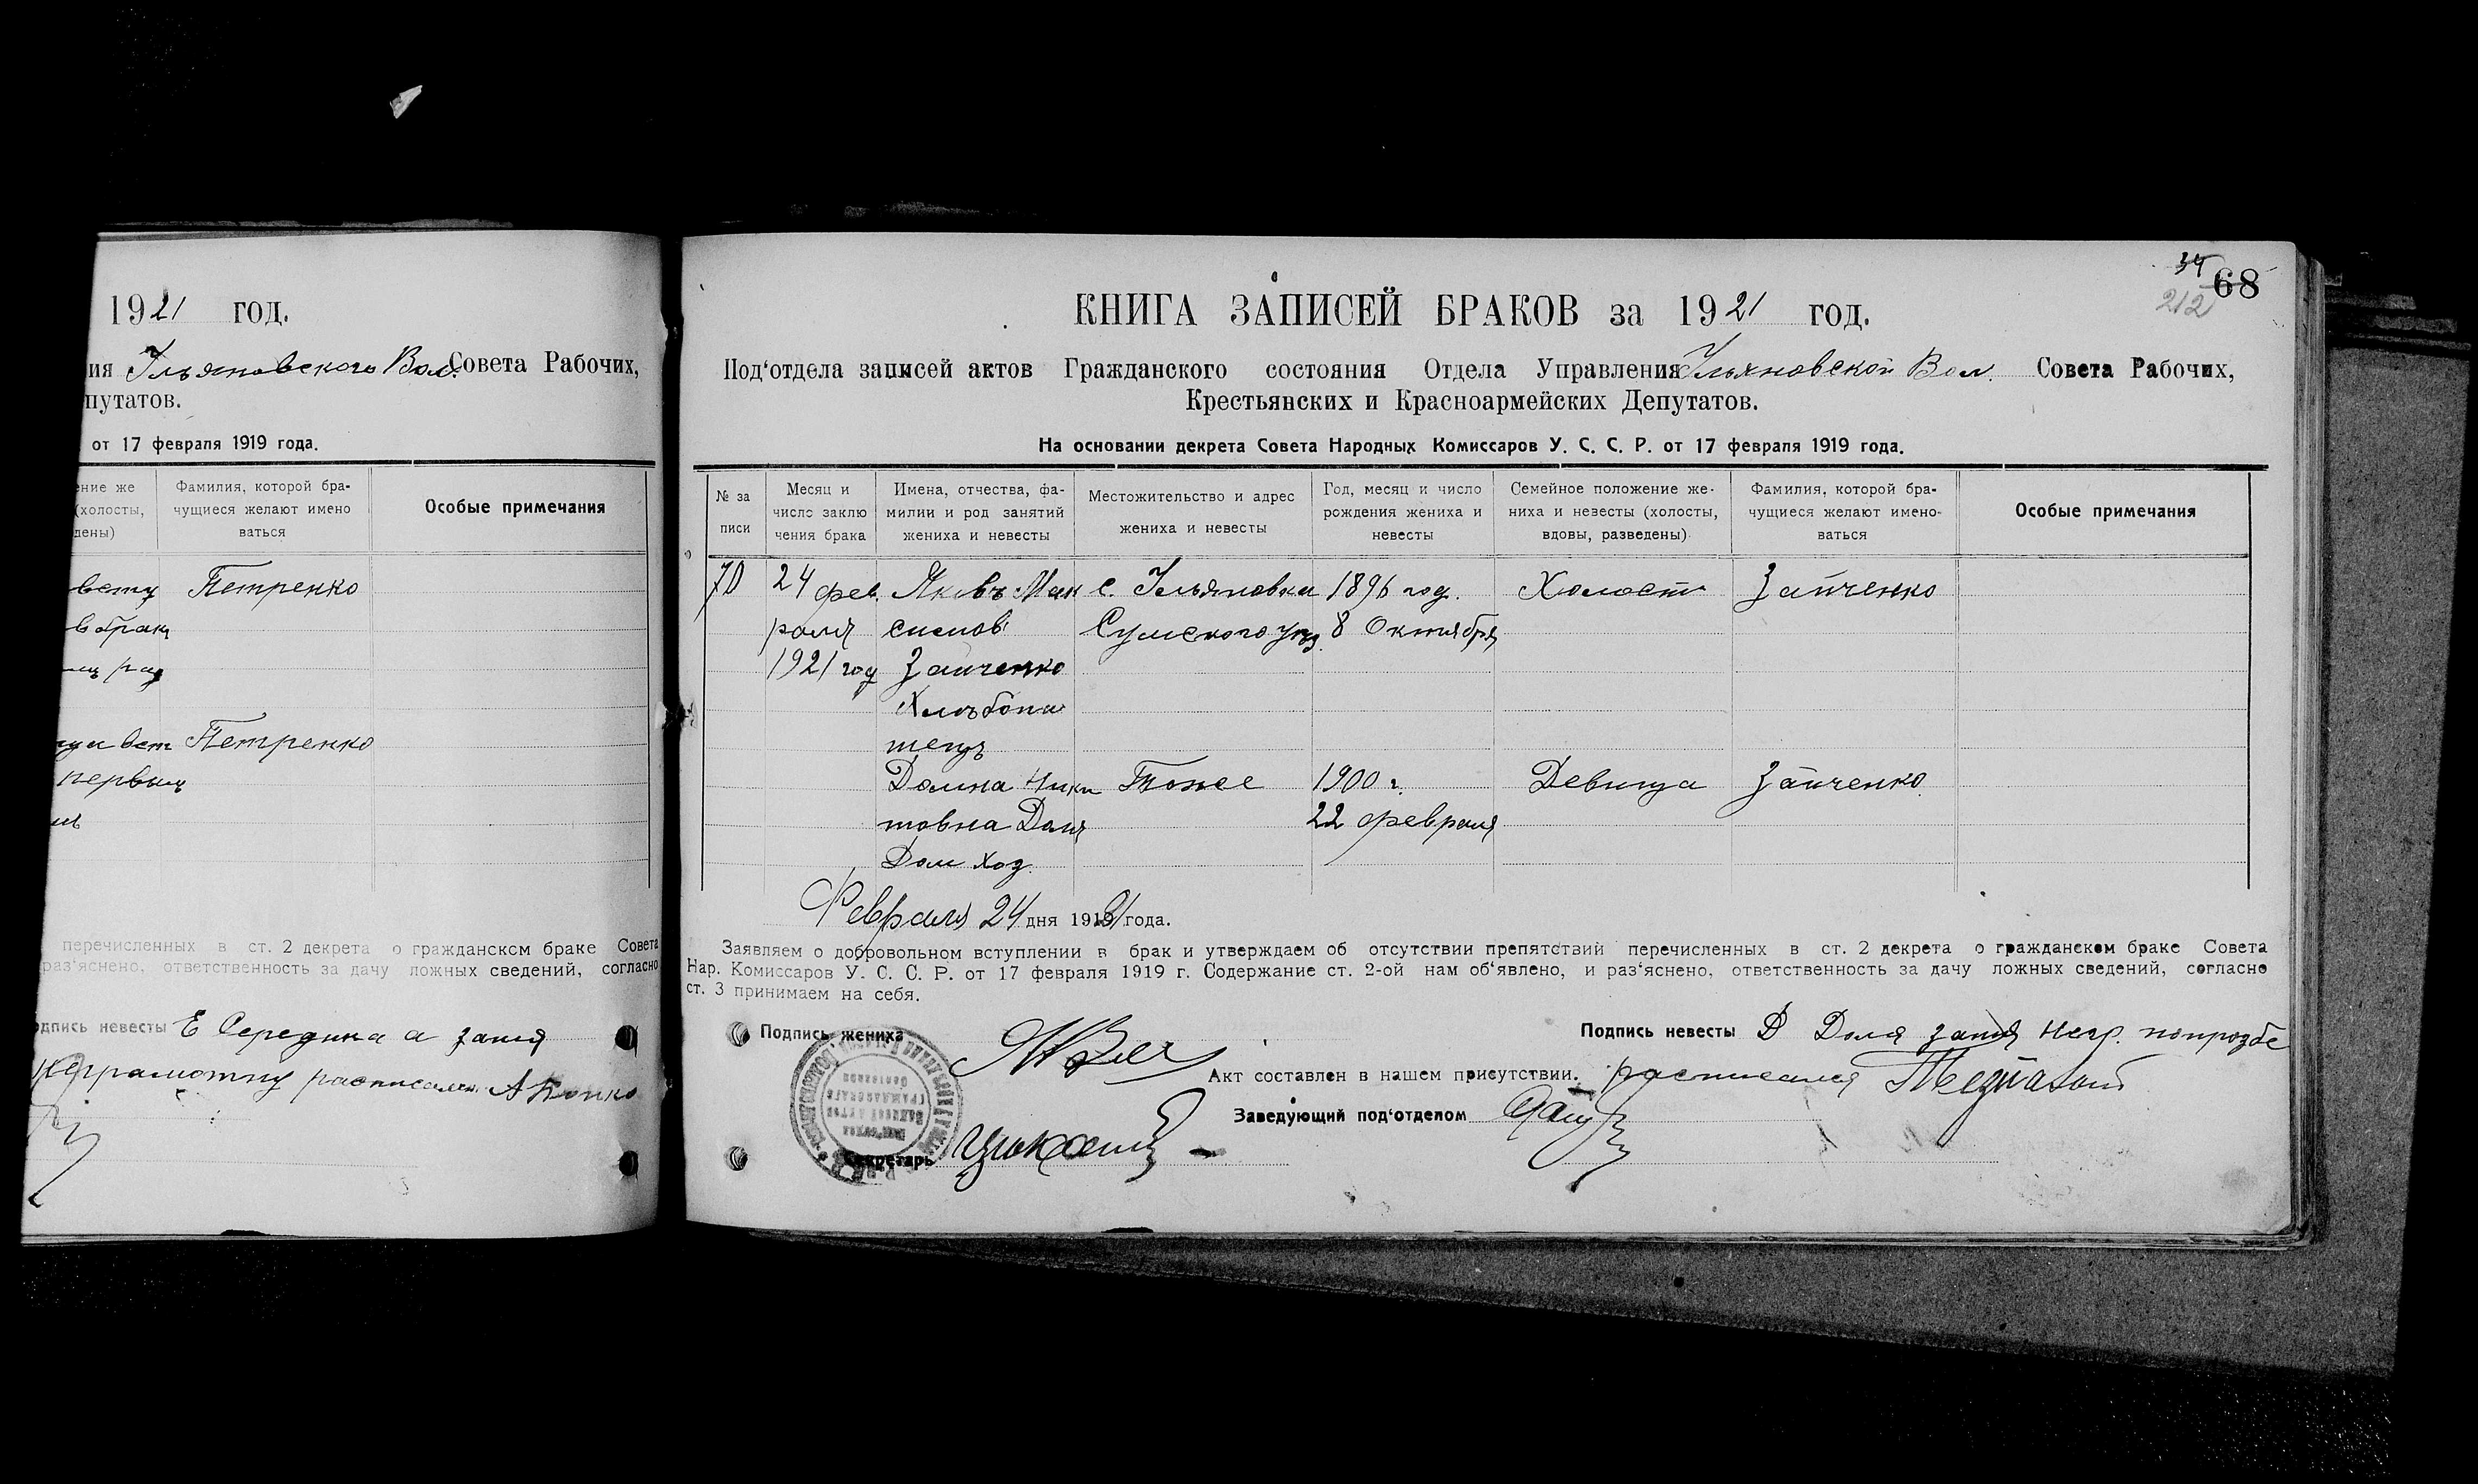 1921 год.
ия Ульяновского Вол. Совета Рабочих,
путатов.
от 17 февраля 1919 года.
ение же
(холосты,
дены)
Фамилия, которой бра-
чущиеся желают имено
ваться
Особые примечания
Петренко
в брак
Петренко
первым
перечисленных в ст. 2 декрета о гражданском браке Совета
раз‘яснено, ответственность за дачу ложных сведений, согласно
одпись невесты Е Середина а за нея
неграмотну расписался А
34
68
212
КНИГА ЗАПИСЕЙ БРАКОВ за 1921 год.
Под‘отдела записей актов Гражданского состояния Отдела Управления Ульяновской Вол. Совета Рабочих,
Крестьянских и Красноармейских Депутатов.
На основании декрета Совета Народных Комиссаров У. С. С. Р. от 17 февраля 1919 года.
№ за
писи
Месяц и
число заклю
чения брака
Имена, отчества, фа-
милии и род занятий
жениха и невесты
Местожительство и адрес
жениха и невесты
Год, месяц и число
рождения жениха и
невесты
Семейное положение же-
ниха и невесты (холосты,
вдовы, разведены)
Фамилия, которой бра-
чущиеся желают имено-
ваться
Особые примечания
70 24 фев. Яковъ Мак с. Ульяновка 1896 год. Холост Зайченко
раля симов Сумского уез. 8 Октября
1921 год Зайченко
Хлѣбопа
шец
Домна Ники Тоже 1900 г. Девица Зайченко
товна Доля 22 февраля
Дом хоз.
Февраля 24 дня 1921 года.
Заявляем о добровольном вступлении в брак и утверждаем об отсутствии препятствий перечисленных в ст. 2 декрета о гражданском браке Совета
Нар. Комиссаров У. С. С. Р. от 17 февраля 1919 г. Содержание ст. 2-ой нам об‘явлено, и раз‘яснено, ответственность за дачу ложных сведений, согласно
ст. 3 принимаем на себя.
Подпись жениха
Подпись невесты Д Доля за нея негр. по прозбе
Акт составлен в нашем присутствии. расписался
Заведующий под‘отделом
Секретарь